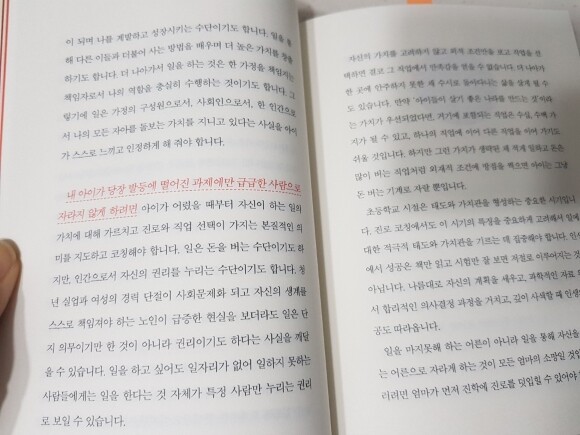 이 되며 나를 계발하고 성장시키는 수단이기도 합니다. 일을 통
해 다른 이들과 더불어 사는 방법을 배우며 더 높은 가치를 창출
하기도 합니다. 더 나아가서 일을 하는 것은 한 가정을 책임지는
책임자로서 나의 역할을 충실히 수행하는 것이기도 합니다. 그
렇기에 일은 가정의 구성원으로서, 사회인으로서, 한 인간으로
서 나의 모든 자아를 돌보는 가치를 지니고 있다는 사실을 아이
가 스스로 느끼고 인정하게 해 줘야 합니다.
내 아이가 당장 발등에 떨어진 과제에만 급급한 사람으로
자라지 않게 하려면 아이가 어렸을 때부터 자신이 하는 일의
가치에 대해 가르치고 진로와 직업 선택이 가지는 본질적인 의
미를 지도하고 코칭해야 합니다. 일은 돈을 버는 수단이기도 하
지만, 인간으로서 자신의 권리를 누리는 수단이기도 합니다. 청
년 실업과 여성의 경력 단절이 사회문제화 되고 자신의 생계를
스스로 책임져야 하는 노인이 급증한 현실을 보더라도 일은 단
지 의무이기만 한 것이 아니라 권리이기도 하다는 사실을 깨달
을 수 있습니다. 일을 하고 싶어도 일자리가 없어 일하지 못하는
사람들에게는 일을 한다는 것 자체가 특정 사람만 누리는 권리
로 보일 수 있습니다.
자신의 가치를 고려하지 않고 외적 조건만을 보고 직업을 선
택하면 결코 그 직업에서 만족감을 얻을 수 없습니다. 더 나아가
한 곳에 안주하지 못한 채 수시로 돌아다니는 삶을 살게 될 수
도 있습니다. 만약 '아이들이 살기 좋은 나라를 만드는 것'이라
는 가치가 우선되었다면, 거기에 포함되는 직업은 두세, 수백 가
지가 될 수 있고, 하나의 직업에 이어 다른 직업을 이어 가기도
쉬울 것입니다. 하지만 그런 가치가 생략된 채 적게 일하고 돈은
많이 버는 직업처럼 외재적 조건에 방점을 찍으면 아이는 그냥
돈 버는 기계로 자랄 뿐입니다.
초등학교 시절은 태도와 가치관을 형성하는 중요한 시기입니
다. 진로 코칭에서도 이 시기의 특징을 중요하게 고려해서 일에
대한 적극적 태도와 가치관을 기르는 데 집중해야 합니다. 인생
에서 성공은 책만 읽고 시험만 잘 보면 저절로 이루어지는 것이
아닙니다. 나름대로 자신의 계획을 세우고, 과학적인 자료
서 합리적인 의사결정 과정을 거치고, 깊이 사색할 때 인생의
공도 따라옵니다.
일을 마지못해 하는 어른이 아니라 일을 통해 자신을
는 어른으로 자라게 하는 것이 모든 엄마의 소망일 것입
러려면 엄마가 먼저 진학에 진로를 덧입힐 수 있어야